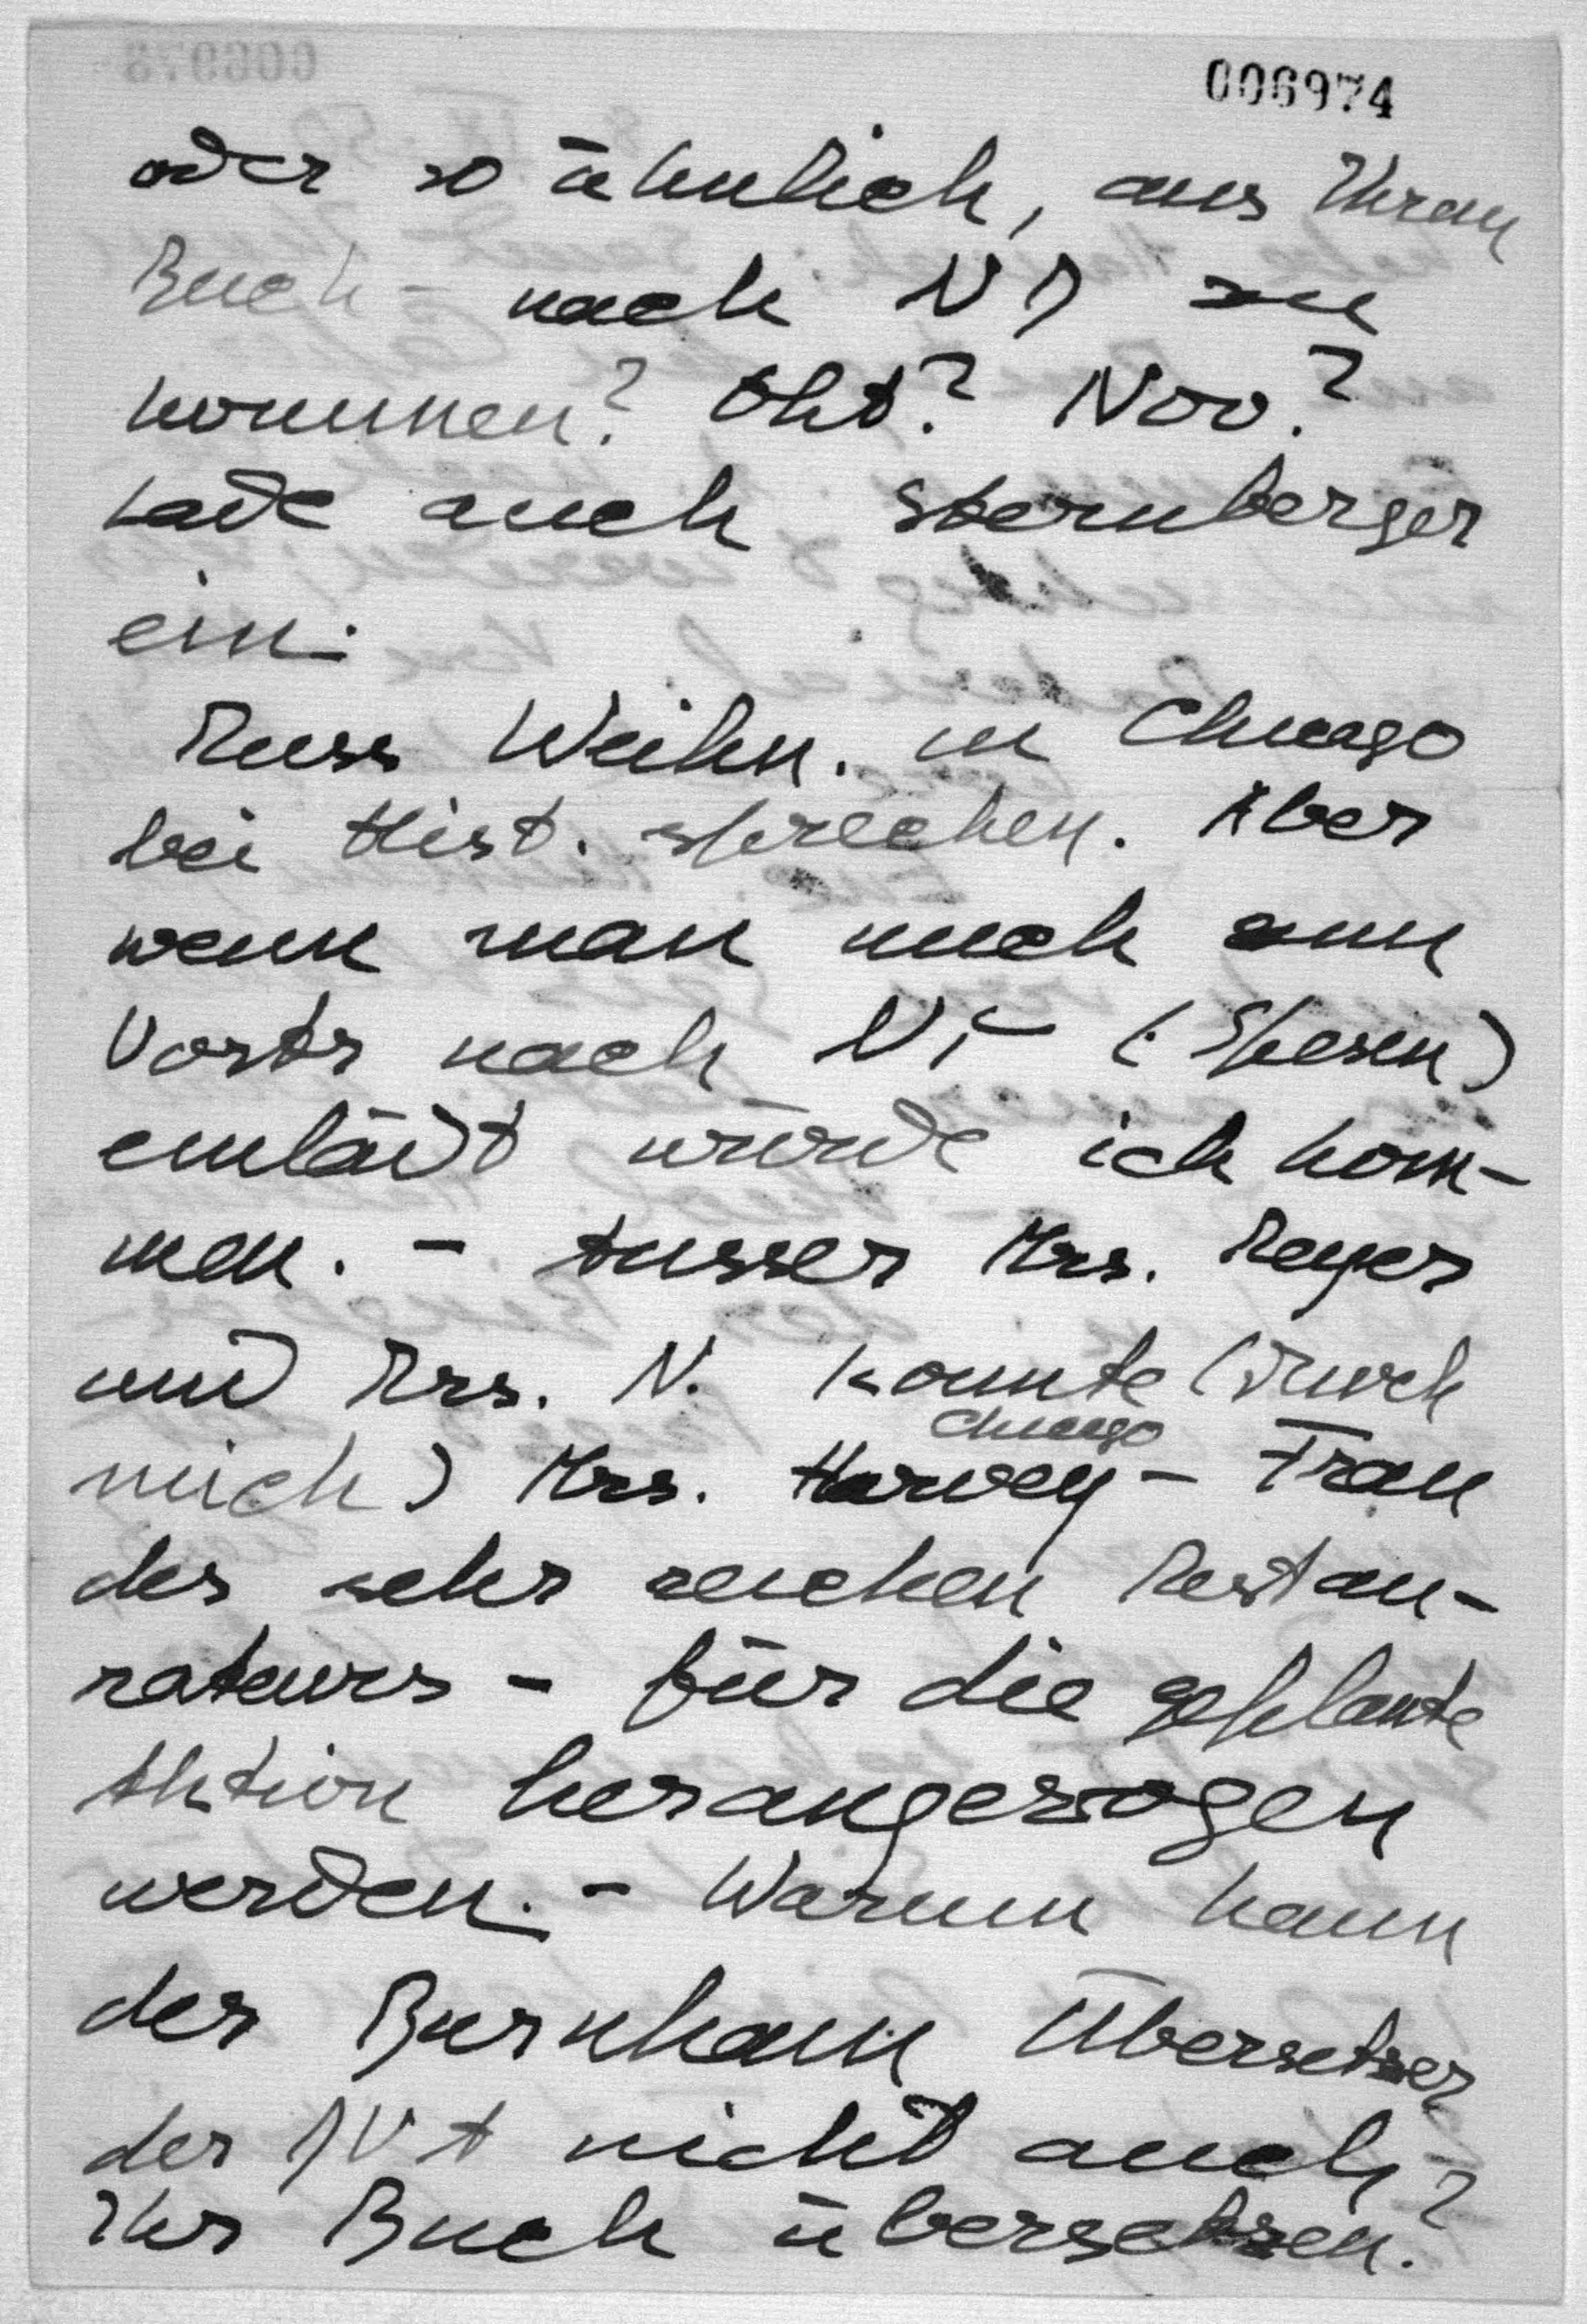 006974
oder so ähnlich, aus Ihrem
Buch - nach NY zu
kommen? Okt? Nov?
Lade auch Sternberger
ein.
Muss Weihn. in Chicago
bei Hist. sprechen. Aber
wenn man mich zum
Vortr nach NY (: Spesen)
einlädt würde ich kom-
men. - Ausser Mrs. Meyer
und Mrs. N. konnte (durch
Chicago
mich) Mrs. Harvey - Frau
des sehr reichen Restau-
rateurs - für die geplante
Aktion herangezogen
werden. - Warum kann
der Burnham Übersetzer
der nicht auch
Ihr Buch übersetzen?